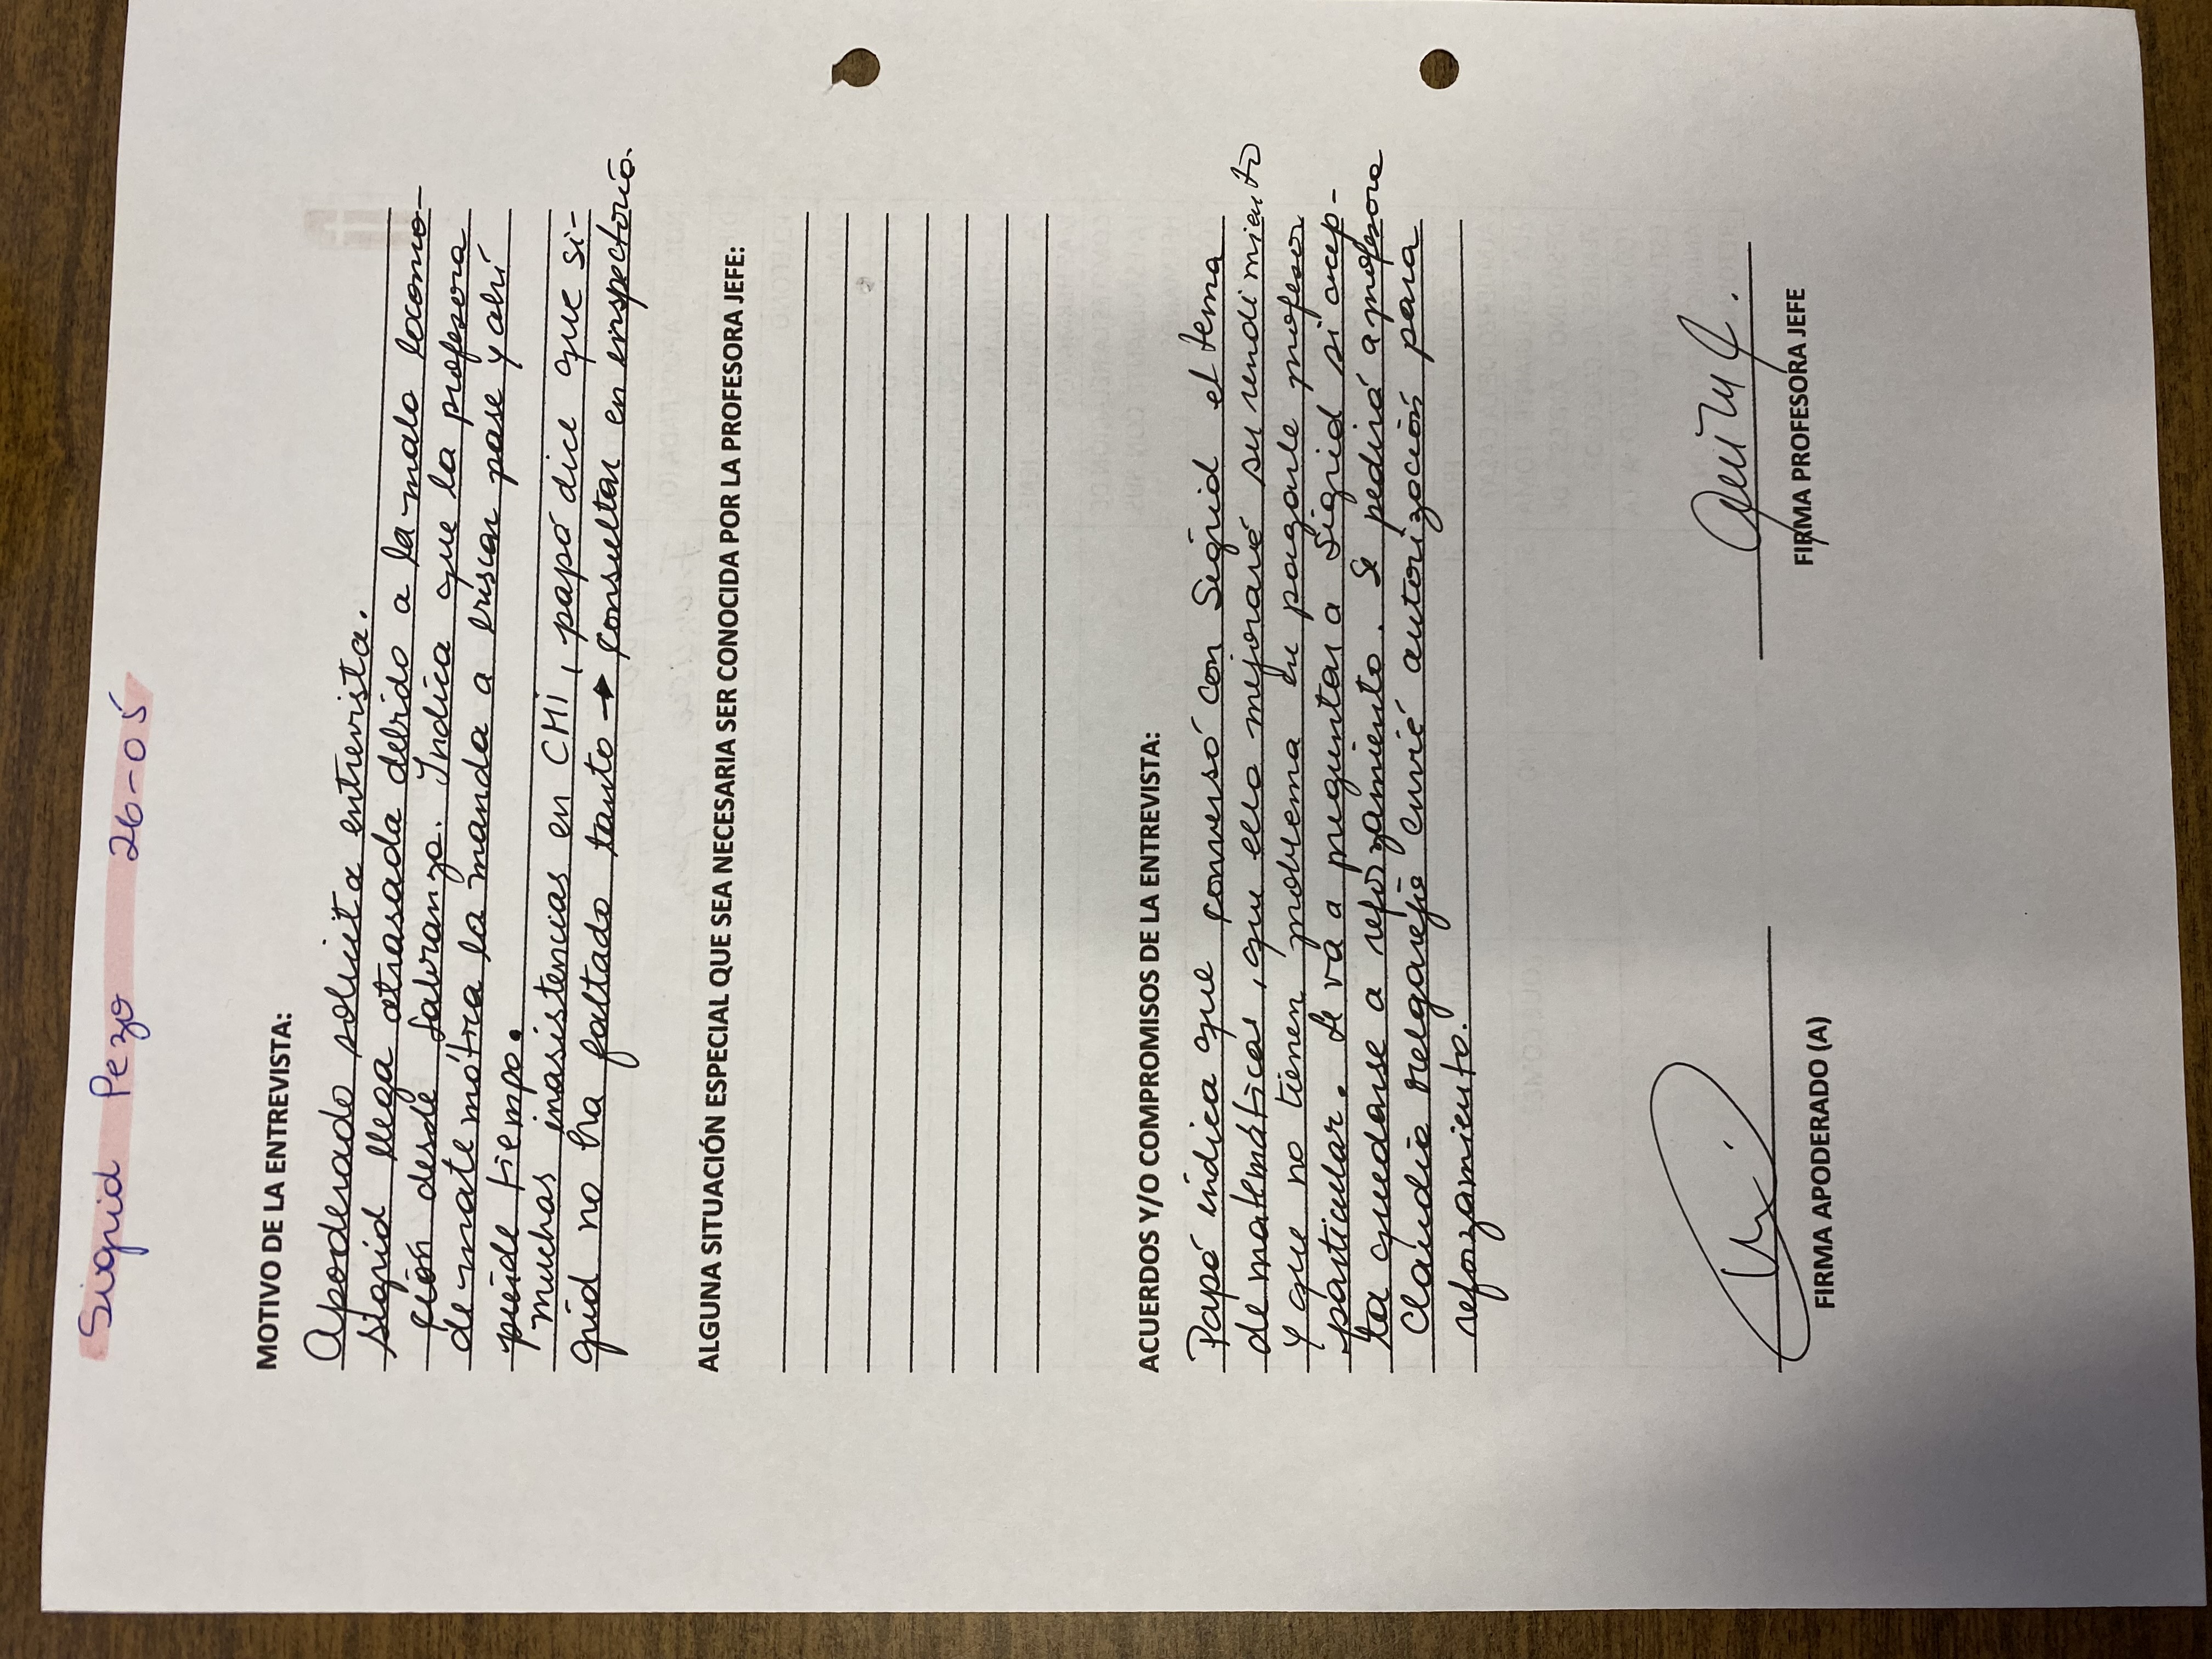 Sigrid Pezo 26-05
MOTIVO DE LA ENTREVISTA:
Apoderado solicita entrevista.
Sigrid llega atrasada debido a la mala locomo-
ción desde Labranza. Indica que la profesora
de matemática la manda a buscar pase y ahí
pierde tiempo.
muchas inasistencias en CMI, papá dice que Si-
grid no ha faltado tanto → consultar en inspectoría.
ALGUNA SITUACIÓN ESPECIAL QUE SEA NECESARIA SER CONOCIDA POR LA PROFESORA JEFE:
ACUERDOS Y/O COMPROMISOS DE LA ENTREVISTA:
Papá indica que conversó con Sigrid el tema
de matemáticas, que ella mejorará su rendimiento
y que no tienen problema en pagarle profesor
particular. Le va a preguntar a Sigrid si acep-
ta quedarse a reforzamiento. Se pedirá a profesora
Claudia Melgarejo envié autorización para
reforzamiento.
FIRMA APODERADO (A) FIRMA PROFESORA JEFE